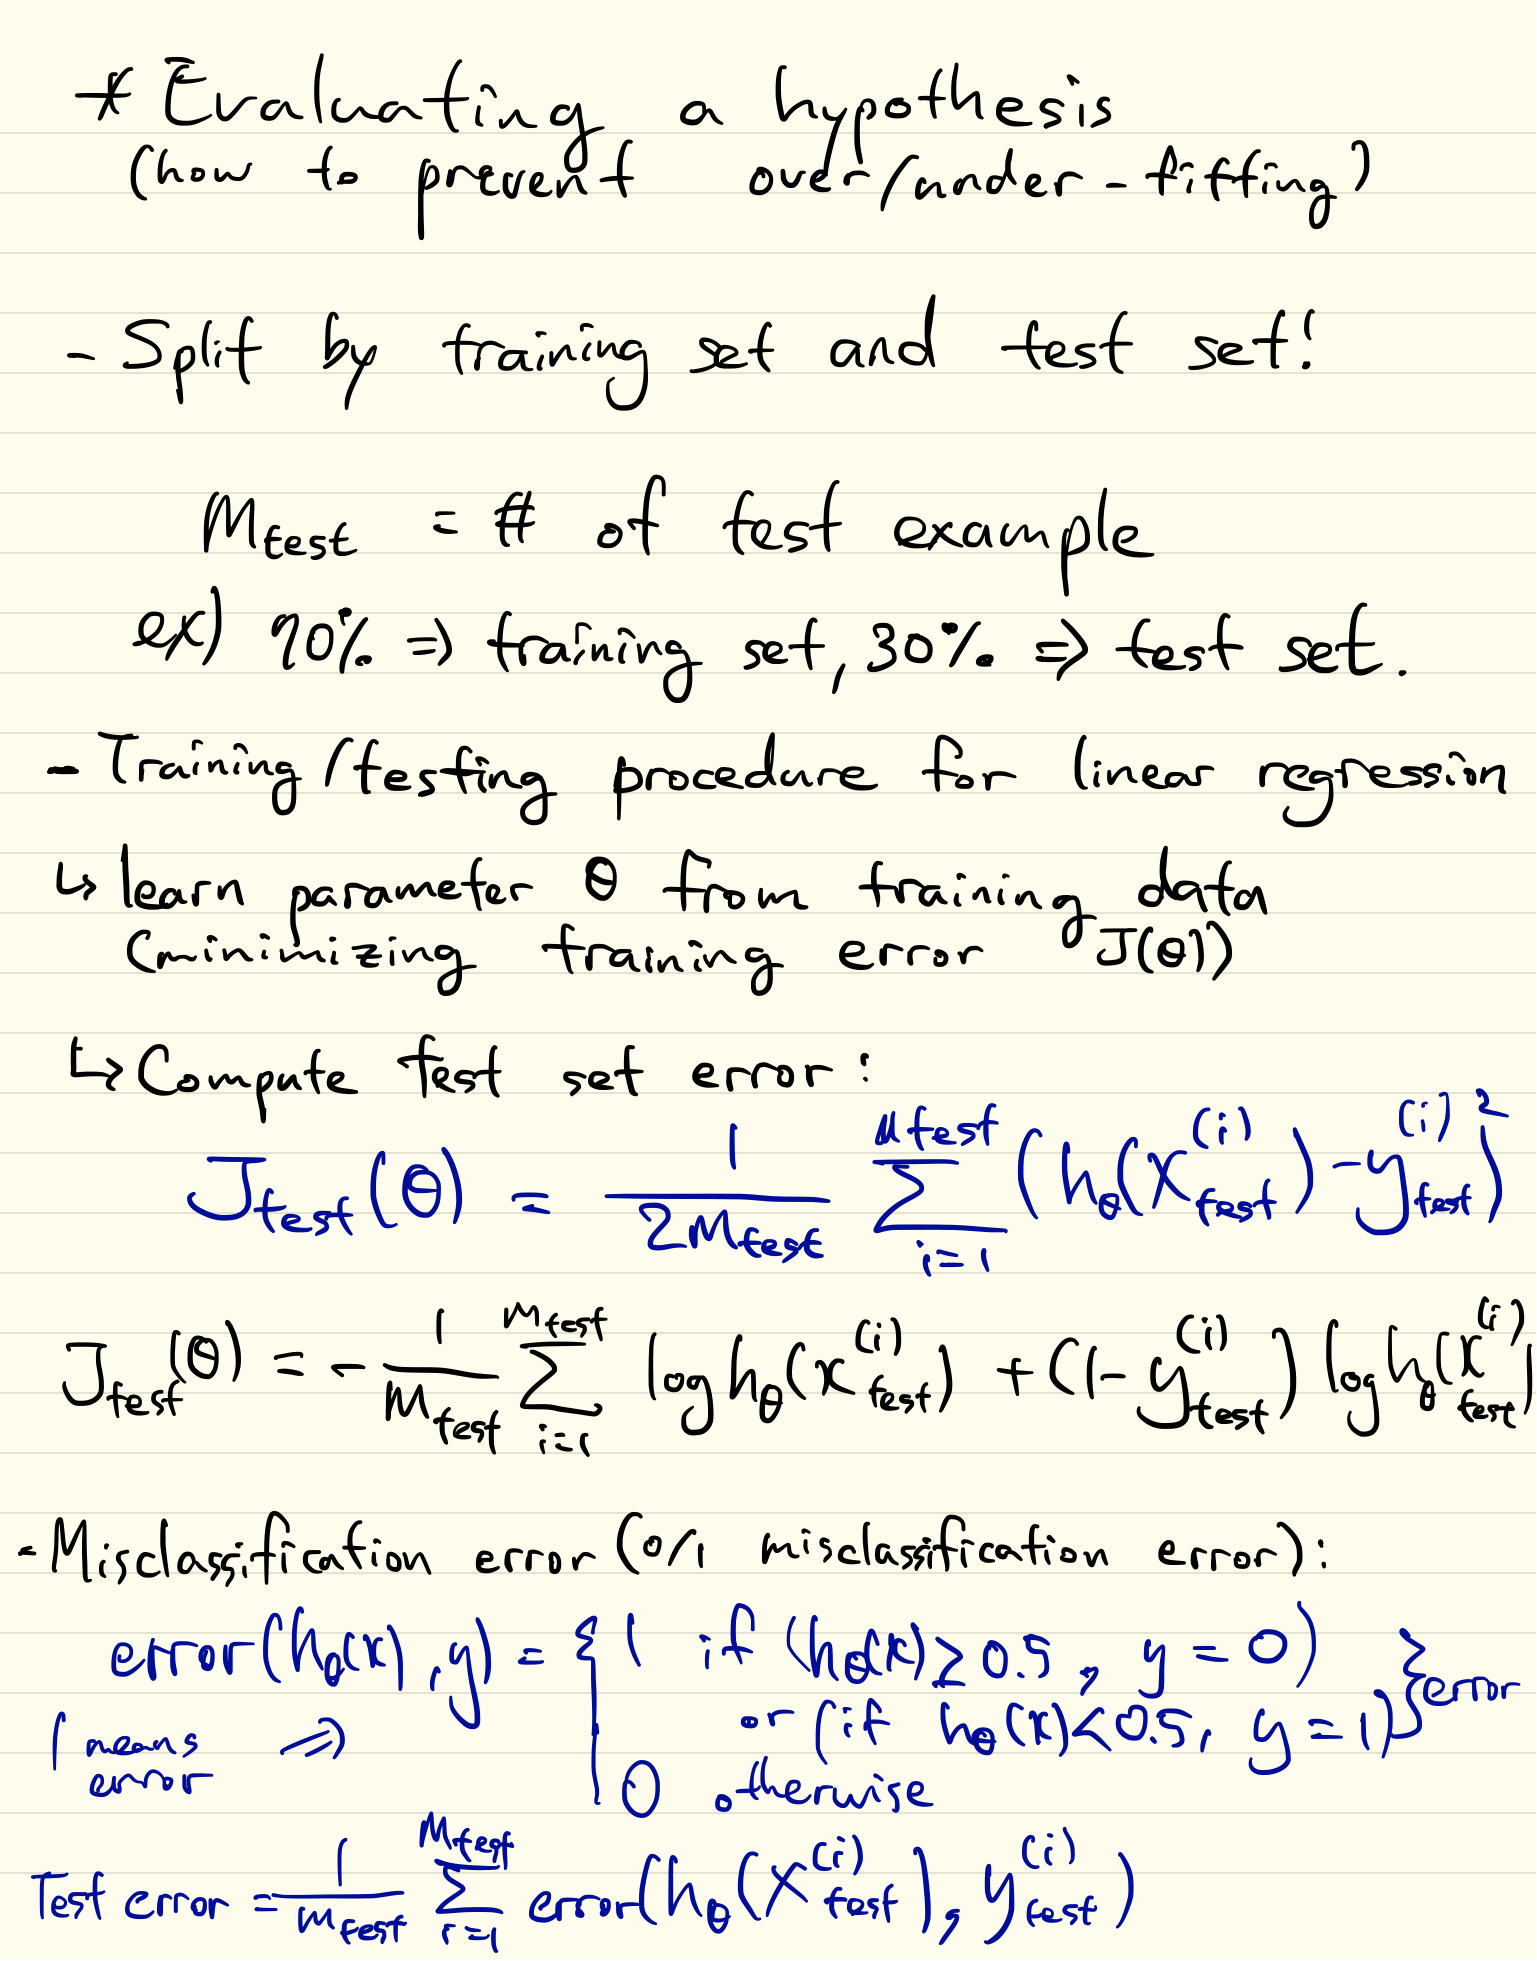 * Evaluating a hypothesis
(how to prevent over/under-fitting)
- Split by training set and test set!
Mtest = # of test example
ex) 70% => training set, 30% => test set.
- Training/testing procedure for linear regression
↳ learn parameter θ from training data
(minimizing training error J(θ))
↳ Compute test set error:
J_test(θ) = 1/(2M_test) Σ_{i=1}^{M_test} (h_θ(x_test^(i)) - y_test^(i))^2
J_test(θ) = - 1/M_test Σ_{i=1}^{M_test} log h_θ(x_test^(i)) + (1 - y_test^(i)) log h_θ(x_test^(i))
- Misclassification error (0/1 misclassification error):
error(h_θ(x), y) = { 1 if (h_θ(x) ≥ 0.5, y = 0) } error
or (if h_θ(x) < 0.5, y = 1)
1 means error =>
0 otherwise
Test error = 1/m_test Σ_{i=1}^{M_test} error(h_θ(x_test^(i)), y_test^(i))